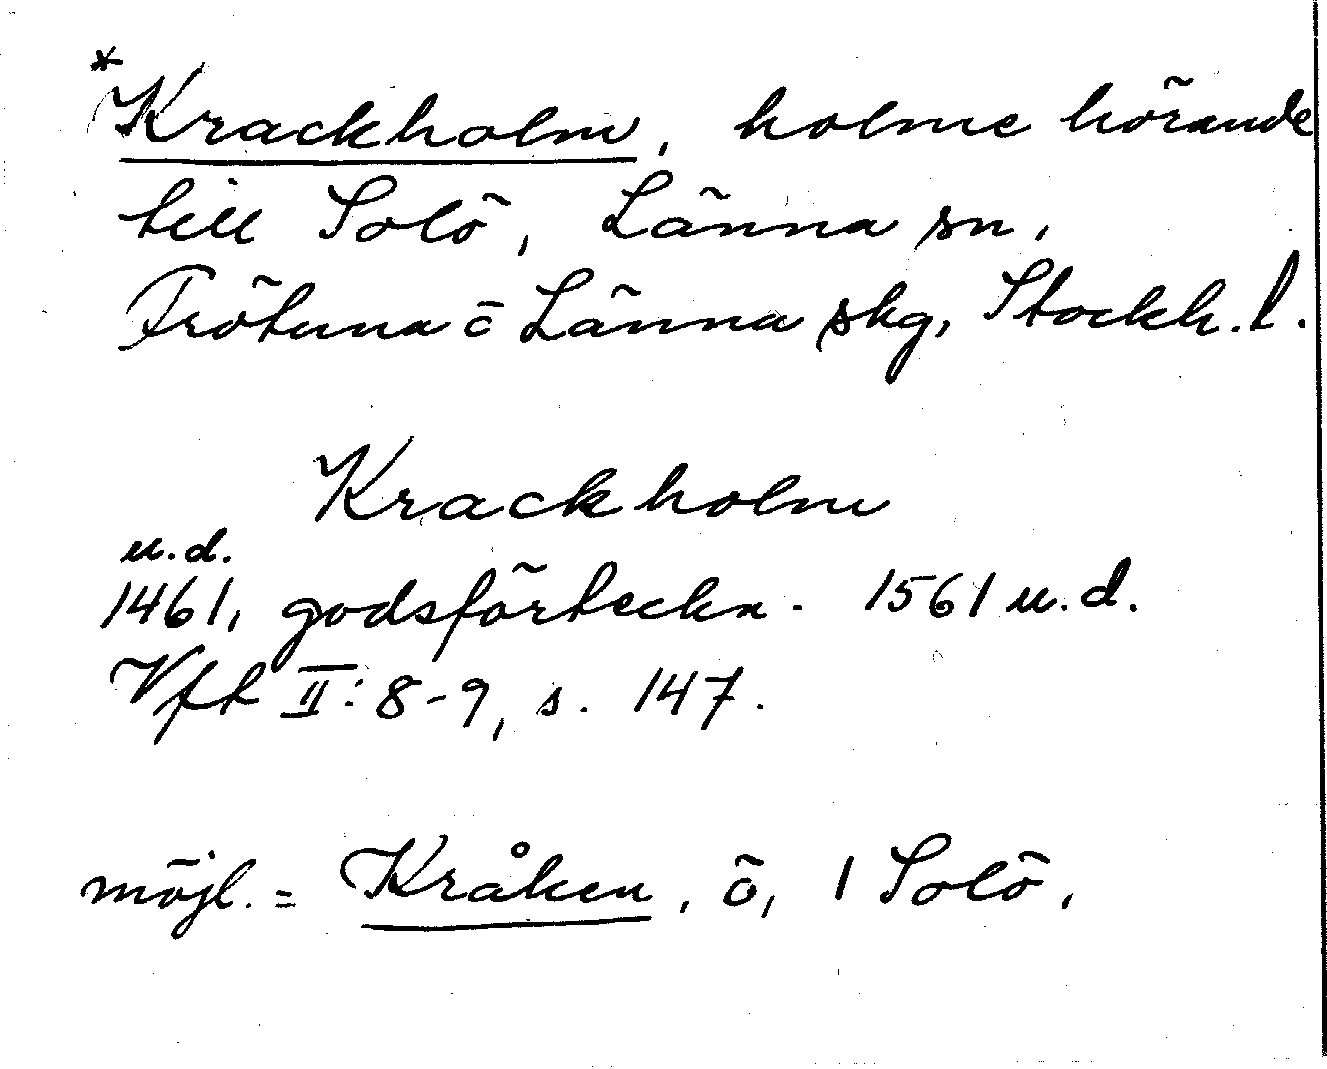 *Krackholm, holme hörande
till Solö, Länna sn,
Frötuna o Länna skg, Stockh. l.
Krackholm
u.d.
1461, godsförteckn. 1561 u.d.
Vft II: 8-9, s. 147.
möjl. = Kråken, ö, 1 Solö,